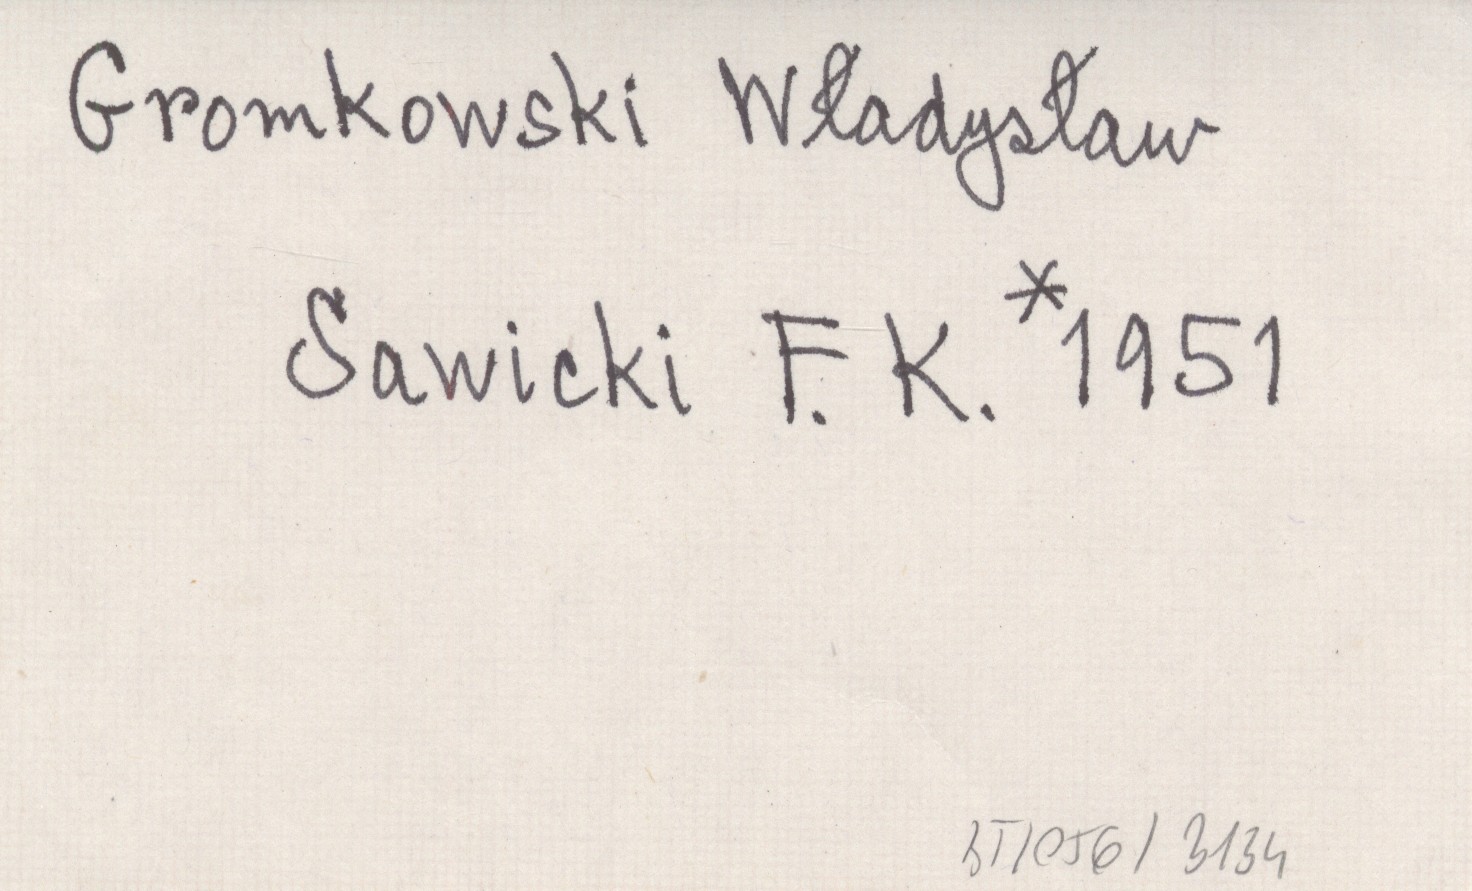 Gromkowski Władysław
Sawicki F. K. *1951
3134